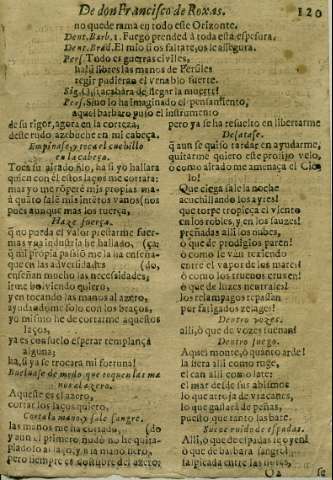 De don Francisco de Roxas. 120
no quede rama en todo este Orizonte.
Dent. Barb. 1. Fuego prended à toda esta espesura.
Dent. Brad. El mio si os faltare, os le assegura.
Pers. Todo es guerras civiles,
si las manos de Persiles
regir pudieran el venablo fuerte.
Sig. llegar la muerte!
Pers. Sino lo ha imaginado el pensamiento,
aquel barbaro puso el instrumento
de su rigor, agora en la corteza,
deste rudo azebuche en mi cabeça.
Empinase, y toca el cuchillo
en la cabeça.
Toca su airado filo, ha si yo hallara
quien con el estos laços me cortara:
mas yo me romperè mis propias manos
à quanto fale mis intetos vanos (nos
pues aunque mas los tuerça,
Haze fuerça.
q̃ no pueda el valor prestarme fuerças
mas ya industria he hallado,
q̃ mi propia passiò me la ha enseña-
que en las adversidades (do,
enseñan mucho las necessidades,
irme bolviendo quiero,
y en tocando las manos al azero,
ayudandome solo con los braços,
yo mismo he de cortarme aquestos
laços,
ya es consuelo esperar templança
alguna;
ha, si ya se trocara mi fortuna!
Buelvase de modo que toquen las ma-
nos al azero.
Aqueste es el azero,
cortar los laços quiero,
Corta la mano, y sale sangre.
las manos me ha cortado, (do
y aun el primero nudo no he quita-
piadoso al laço, y a la mano fiero,
pero siempre es costubre del azero,
pero ya se ha resuelto en libertarme
Desatase.
q̃ aun se quiso tardar en ayudarme,
quitarme quiero este prolijo velo,
ò como airado me amenaça el Cielo
Que ciega sale la noche
acuchillando los ayres!
que torpe tropieça el viento
en los robles, y en los sauzes!
preñadas alli las nubes,
ò que de prodigios paren!
ò como se van texiendo
entre el vapor de los mares!
ò como los truenos crugen!
ò que de luzes neutrales!
los relampagos repassan
por fatigados zelages!
Dentro vozes.
alli, ò que de vozes suenan!
Dentro fuego.
Aquel monte, ò quanto arde!
la fiera alli como ruge,
el can alli como late!
el mar desde sus abismos
lo que arroja de viracantes,
lo que gastarà de peñas,
puesto que tanto las bate.
Suene ruido de espadas.
Alli, ò que de espadas se oyen!
ò que de barbara sangre!
salpicada entre las hojas,
Q 2 se